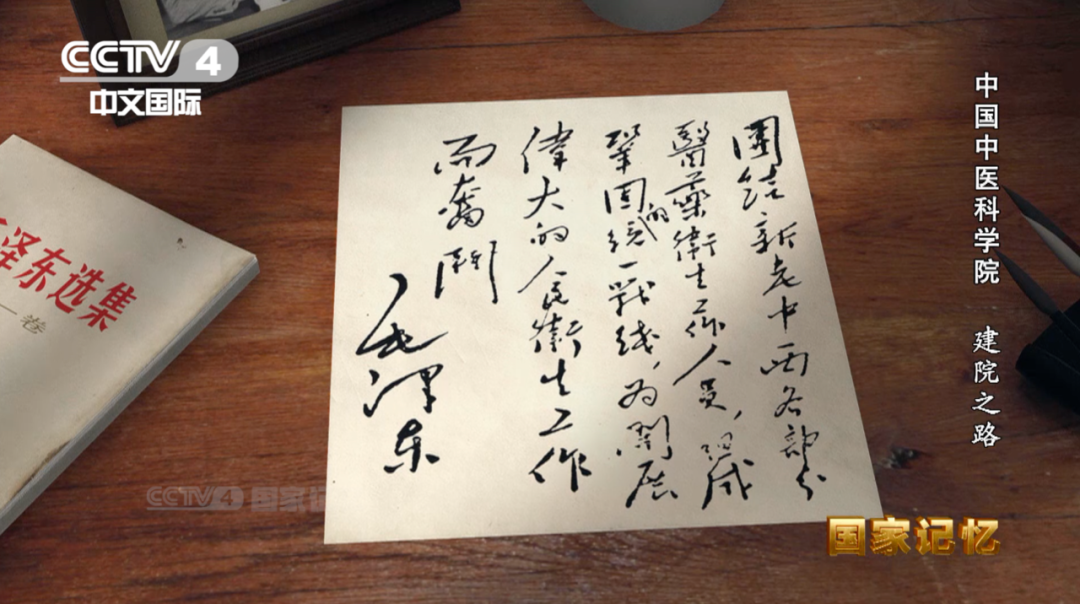 CCTV 4
中文国际
中国中医科学院 建院之路
團结新老中西各部分
醫藥衞生工作人员，组成
鞏固的统一战线，为開展
偉大的人民衞生工作
而奮鬥
毛泽东
泽东选集
一卷
CCTV4 国家记
国家记忆